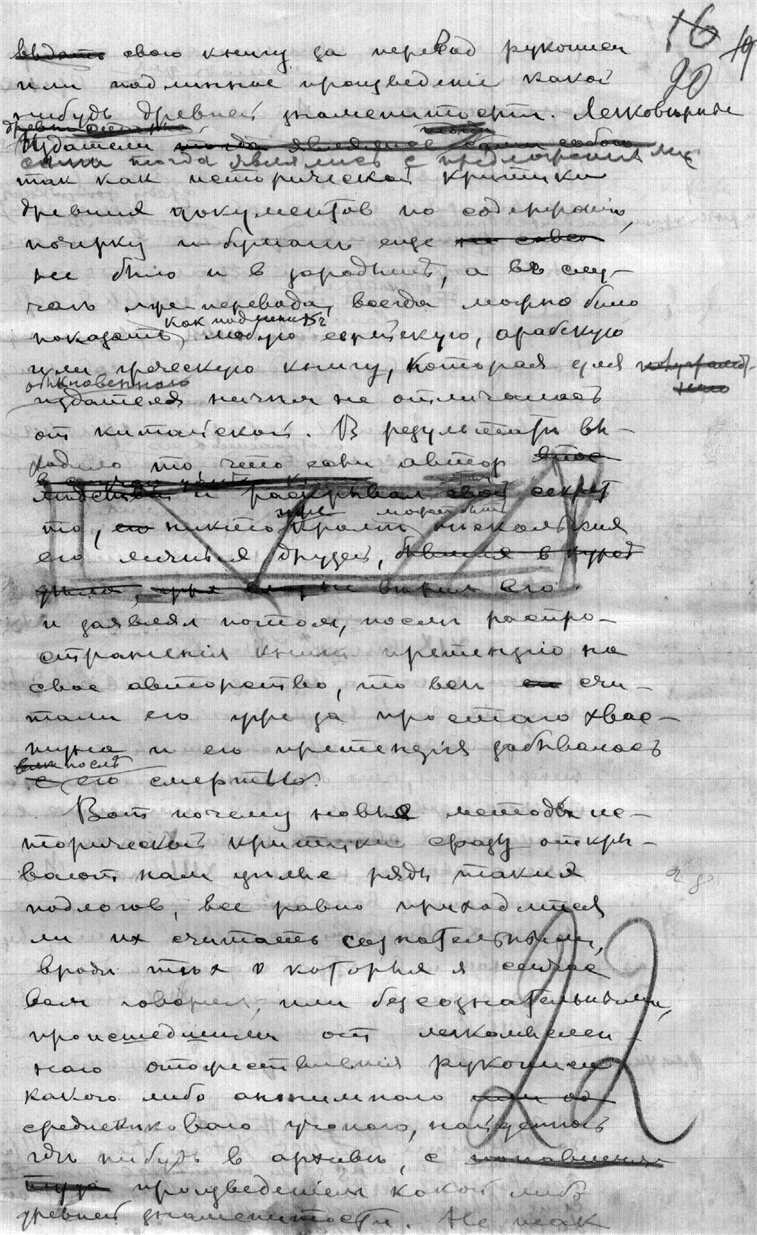 16
19
20
выдать свою книгу за перевод рукописи
или подлинное произведеніе какой
нибудь древней знаменитости. Легковѣрные
Издатели тогда являлись
сами тогда являлись с предложеніями
так как исторической критики
древних документов по содержанію,
почерку и бумагѣ еще не совсѣ
не было и в зародышѣ, а въ слу-
чаѣ же перевода, всегда можно было
как подлинник
показать любую еврейскую, арабскую
или греческую книгу, которая для
обыкновеннаго
издателя ничѣм не отличалась
от китайской. В результатѣ вы-
ходило то, что если автор
и раскрывал свой секрет
уже может быть
то, никто кромѣ нескольких
его личных друзей,
не вѣрил его
и заявлял потом, послѣ распро-
страненія книги претензію на
свое авторство, то всѣ счи-
тали его уже за простого хвас-
туна и его претензія забывалась
послѣ
с его смертью.
Вот почему новые методы ис-
торической критики сразу откры-
вают нам цѣлые ряды таких
подлогов, все равно приходится
ли их считать сознательными,
вродѣ тѣх о которых я сейчас
вам говорил, или безсознательными,
происшедшими от легкомыслен-
наго отожествленія рукописи
какого либо анонимного или
средневѣковаго ученого, найденной
гдѣ нибудь в архивѣ, с
произведеніем какой либо
древней знаменитости. Не так
22